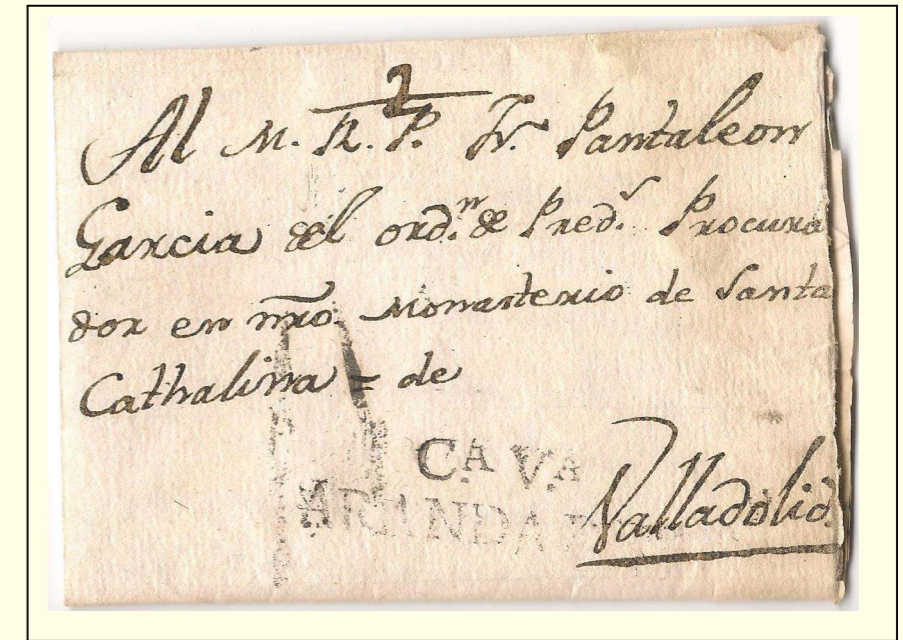 2
Al M. R. P. Fr. Pantaleon
Garcia del ord.n de Pred.s Procura
dor en nr̃o. Monasterio de Santa
Cathalina = de
C.A V.A
ARANDA
Valladolid